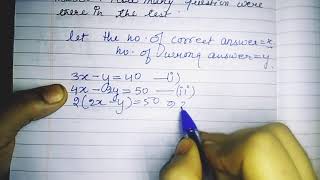 How many question were
there in the test.
let the no. of correct answer=x
no. of wrong answer=y.
3x-y=40 —(i)
4x-2y=50 —(ii)
2(2x-y)=50 ⇒